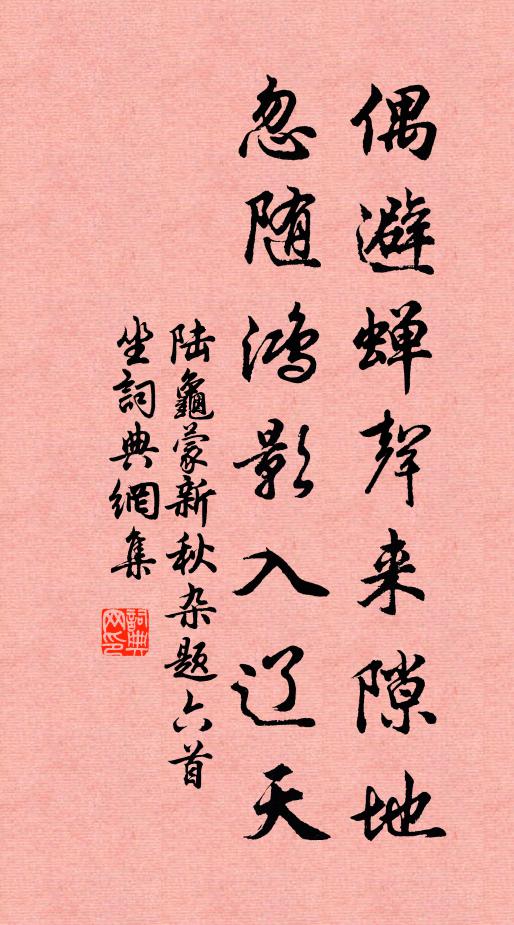 偶避蝉聲来隙地
忽随鸿影入辽天
陆龜蒙新秋杂题六首
坐詞典網集
詞典网印